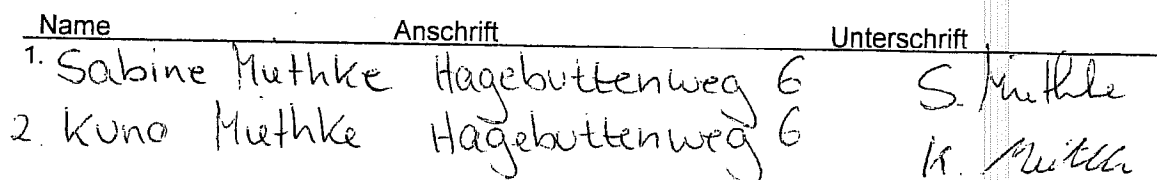 Name Anschrift Unterschrift
1. Sabine Miethke Hagebuttenweg 6 S. Miethke
2. Kuno Miethke Hagebuttenweg 6 K. Miethke